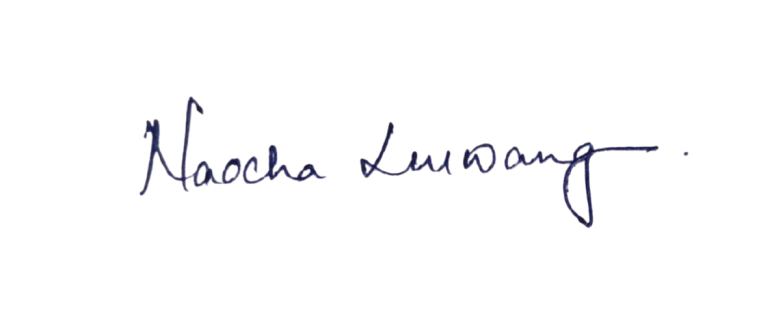 Naocha Luwang.